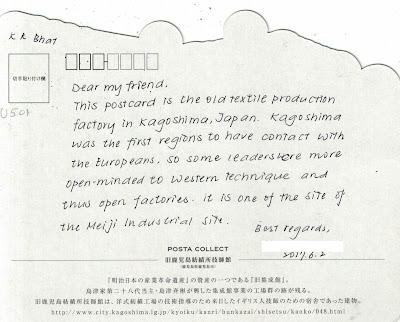 K K Bhat
切手貼り付け欄
U501
Dear my friend.
This postcard is the old textile production
factory in Kagoshima, Japan. Kagoshima
was the first regions to have contact with
the Europeans. So some leaders are more
open-minded to Western technique and
thus open factories. It is one of the site of
the Meiji Industrial Site.
Best regards,
2017.6.2
POSTA COLLECT
旧鹿児島紡績所技師館
(鹿児島県鹿児島市)
『明治日本の産業革命遺産』の資産の一つである『旧集成館』。
島津家第二十八代当主・島津斉彬が興した集成館事業の工場群の跡が残る。
旧鹿児島紡績所技師館は、洋式紡績工場の技術指導のため来日したイギリス人技師のための宿舎であった建物。
http://www.city.kagoshima.lg.jp/kyoiku/kanri/bunkazai/shisetsu/kanko/048.html